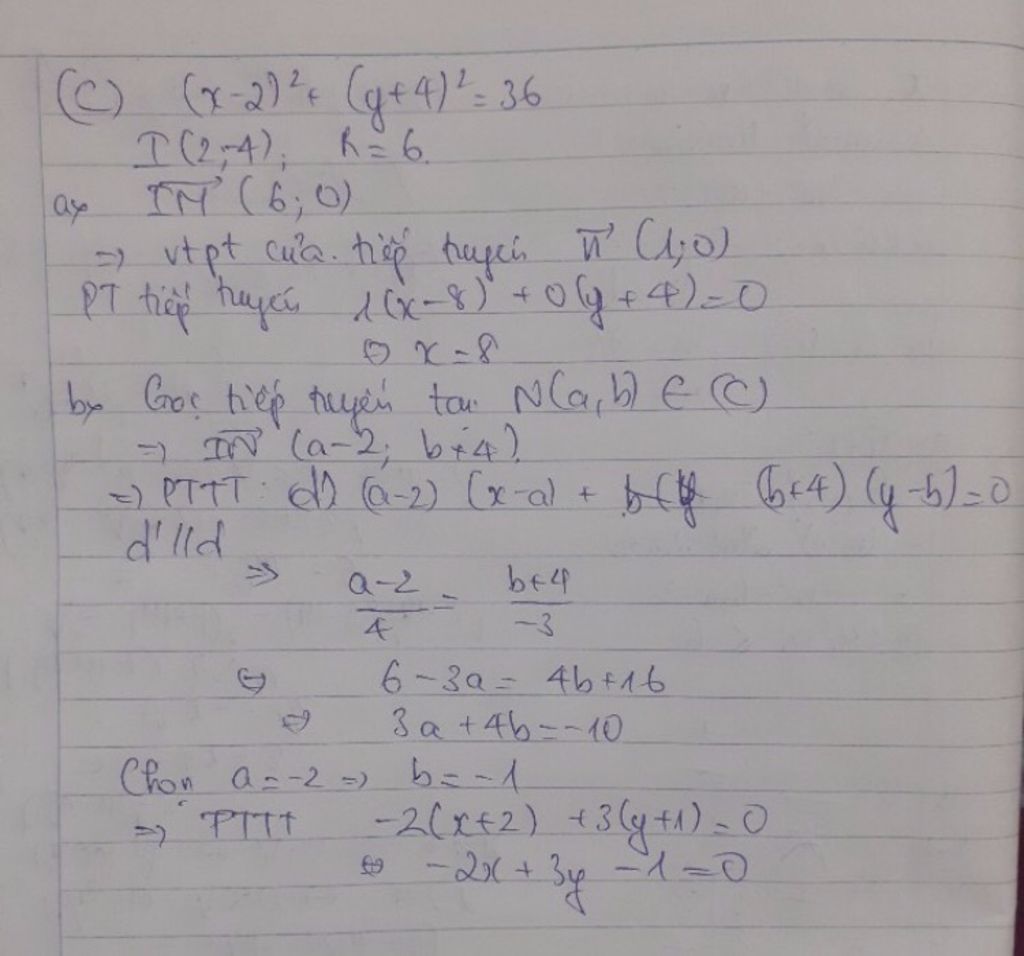 (C) (x-2)² + (y+4)² = 36
I(2;-4), R = 6.
a, IM→ (6; 0)
=> vtpt của tiếp tuyến n→ (1;0)
PT tiếp tuyến 1(x-8) + 0(y+4) = 0
⇔ x = 8
b, Gọi tiếp tuyến tại N(a,b) ∈ (C)
=> IN→ (a-2; b+4)
=> PTTT: d') (a-2)(x-a) + (b+4)(y-b) = 0
d' // d
=> (a-2)/4 = (b+4)/-3
⇔ 6-3a = 4b+16
⇔ 3a + 4b = -10
Chọn a = -2 => b = -1
=> PTTT -2(x+2) + 3(y+1) = 0
⇔ -2x + 3y - 1 = 0